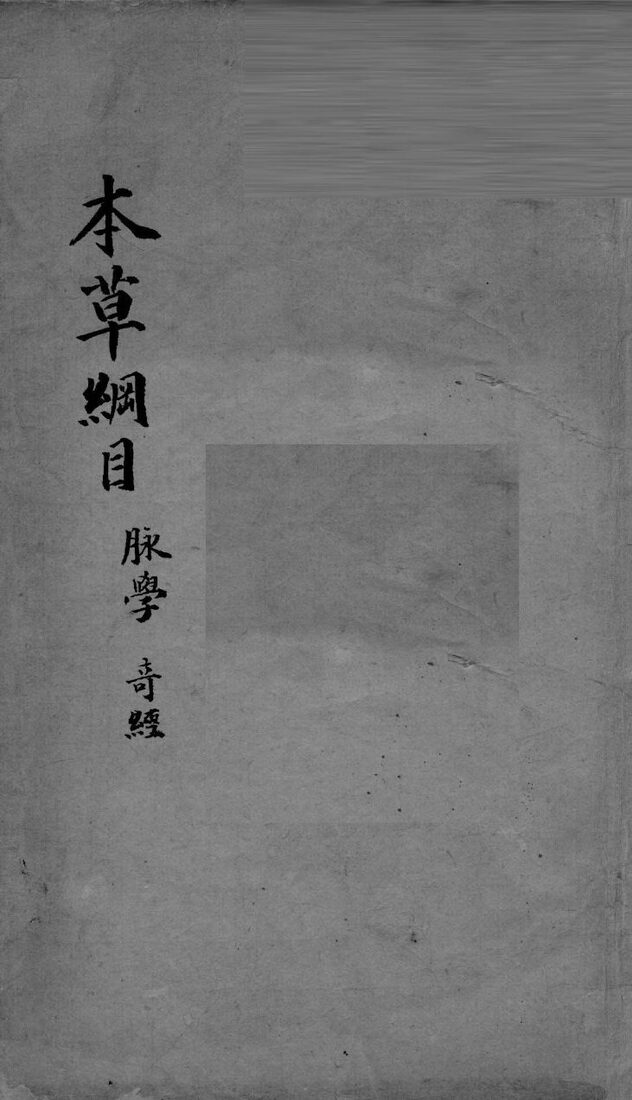 本草綱目
脉學 奇經